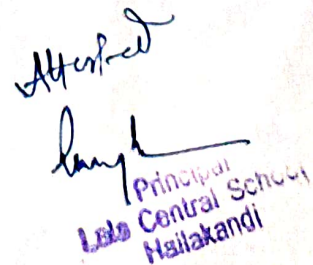 Attested
Principal
Lala Central School
Hailakandi